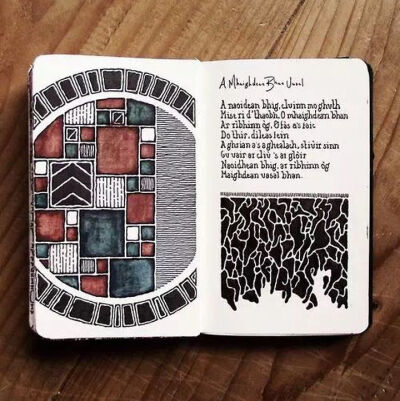 A Mhaighdean Bhan Uasal
A naoidean bhig, cluinn mo ghuth
Mise ri d'thaobh, O mhaighdean bhan
Ar righinn òg, fàs a's faic
Do thir, dileas fein
A ghrian a's a ghealach, stiùir sinn
Gu uair ar cliù 's ar glòir
Naoidhean bhig, ar righinn òg
Maighdean uasal bhan.